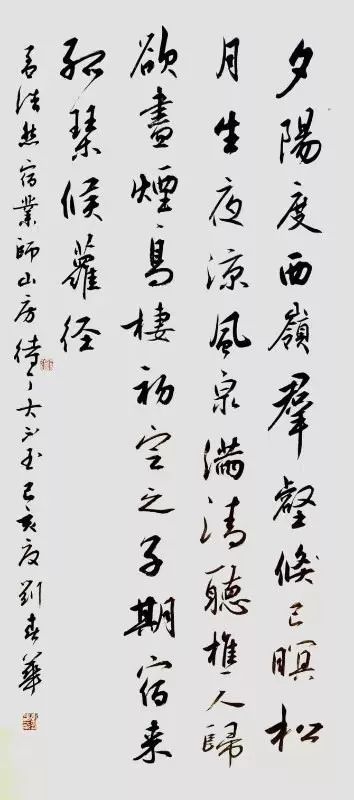 夕陽度西嶺羣壑倏已暝松
月生夜涼風泉滿清聽樵人歸
欲盡煙鳥棲初定之子期宿来
孤琴候蘿径
孟浩然宿業師山房待丁大不至己亥夏刘春華